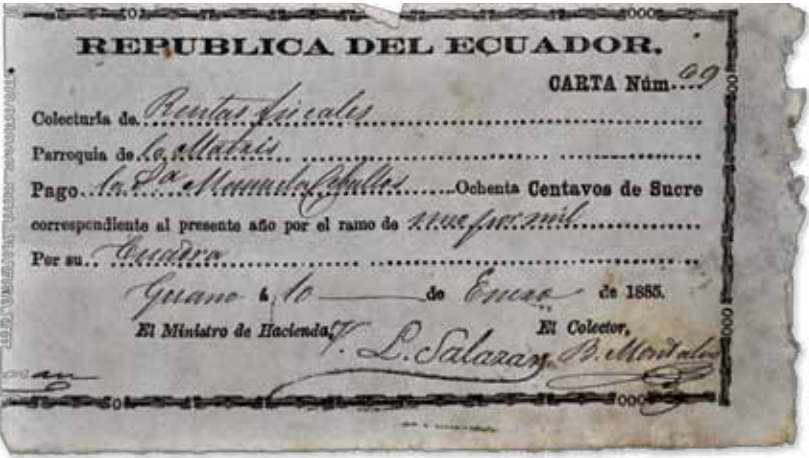 REPUBLICA DEL ECUADOR.
CARTA Núm....69
Colecturía de Rentas fiscales
Parroquia de la Matriz
Pago la Sª Manuela Ceballos Ochenta Centavos de Sucre
correspondiente al presente año por el ramo de uno por mil
Por su Cuadra
Guano á 10 de Enero de 1885.
El Ministro de Hacienda, El Colector,
V. L. Salazar. B. Montalvo